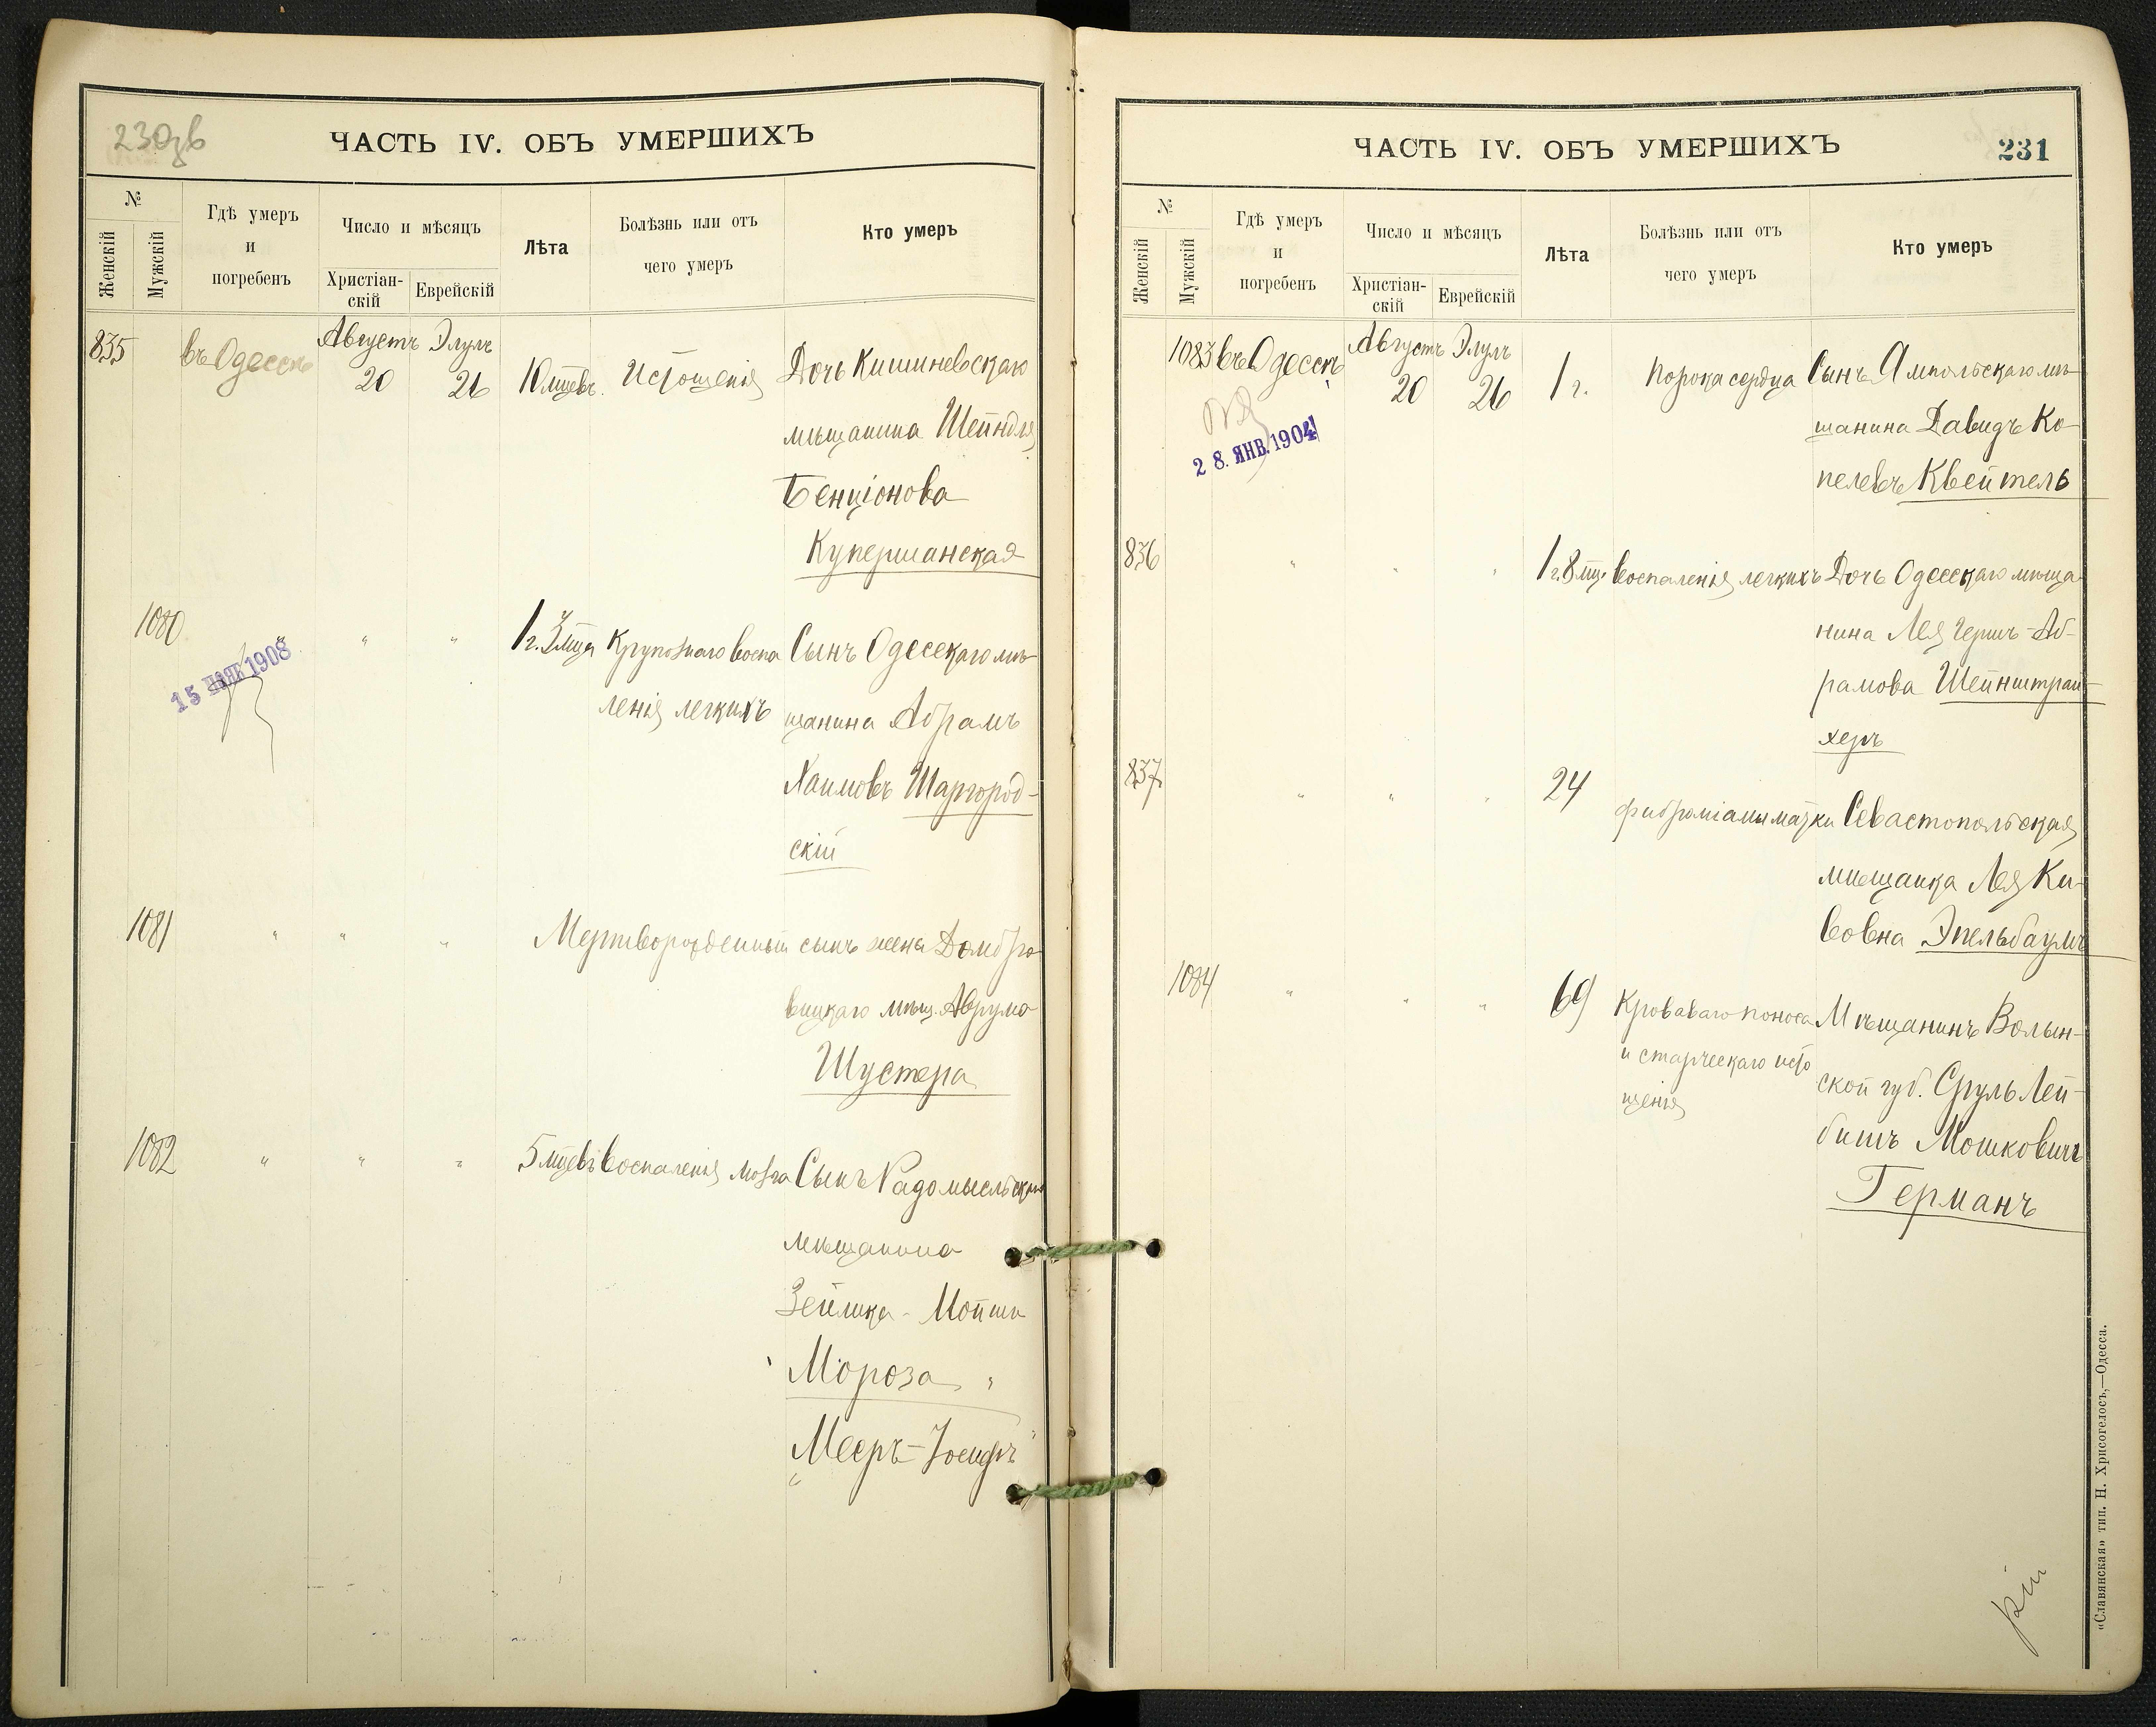 230зв
ЧАСТЬ IV. ОБЪ УМЕРШИХЪ
№
Женскій
Мужскій
Гдѣ умеръ
и
погребенъ
Число и мѣсяцъ
Христіан-
скій
Еврейскій
Лѣта
Болѣзнь или отъ
чего умеръ
Кто умеръ
835 въ Одессѣ Августъ 20 Элулъ 26 10 мцевъ. Истощенія Дочь Кишиневскаго
мѣщанина Шейндля
Бенціонова
Купершанская
1080 " " " 1 г. 3 мца Крупознаго воспа Сынъ Одесскаго мѣ-
ленія легкихъ щанина Абрамъ
Хаимовъ Шаргород-
скій
15 1908
1081 " " " Мертворожденный сынъ жена Домбро-
вицкаго мѣщ. Аврума
Шустера
1082 " " " 5 мцевъ Воспаленія мозга Сынъ Радомысльскаго
мѣщанина
Зейлика - Мойши
Мороза "
"Мееръ-Іосифъ"
ЧАСТЬ IV. ОБЪ УМЕРШИХЪ
231
№
Женскій
Мужскій
Гдѣ умеръ
и
погребенъ
Число и мѣсяцъ
Христіан-
скій
Еврейскій
Лѣта
Болѣзнь или отъ
чего умеръ
Кто умеръ
1083 въ Одессѣ Августъ 20 Элулъ 26 1 г. Порока сердца Сынъ Ямпольскаго мѣ-
щанина Давидъ Ко-
пелевъ Квейтель
28. ЯНВ. 1904
836 " " " 1 г. 8 мц. Воспаленія легкихъ Дочь Одесскаго мѣща-
нина Лея Гершъ-Аб-
рамова Шейнштрай-
херъ
837 " " " 24 фиброміомы матки Севастопольская
мѣщанка Лея Ки-
вовна Эпельбаумъ
1084 " " " 69 Кроваваго поноса Мѣщанинъ Волын-
и старческаго исто ской губ. Сруль Лей-
щенія бишъ Мошковичъ
Германъ
«Славянская» тип. Н. Хрисогелосъ,—Одесса.